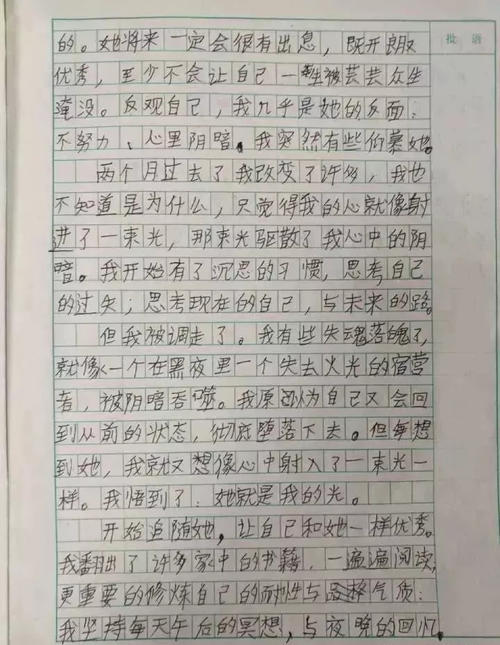 批语
的。她将来一定会很有出息，既开朗又
优秀，至少不会让自己一生被芸芸众生
淹没。反观自己，我几乎是她的反面：
不努力、心里阴暗。我突然有些仰慕她。
两个月过去了我改变了许多，我也
不知道是为什么，只觉得我的心就像射
进了一束光，那束光驱散了我心中的阴
暗。我开始有了沉思的习惯，思考自己
的过失；思考现在的自己，与未来的路。
但我被调走了。我有些失魂落魄了，
就像一个在黑夜里一个失去火光的宿营
者，被阴暗吞噬。我原以为自己又会回
到从前的状态，彻底堕落下去。但每想
到她，我就又想像心中射入了一束光一
样。我悟到了：她就是我的光。
开始追随她，让自己和她一样优秀。
我翻出了许多家中的书籍，一遍遍阅读，
更重要的修炼自己的耐性与气质：
我坚持每天午后的冥想，与夜晚的回忆。